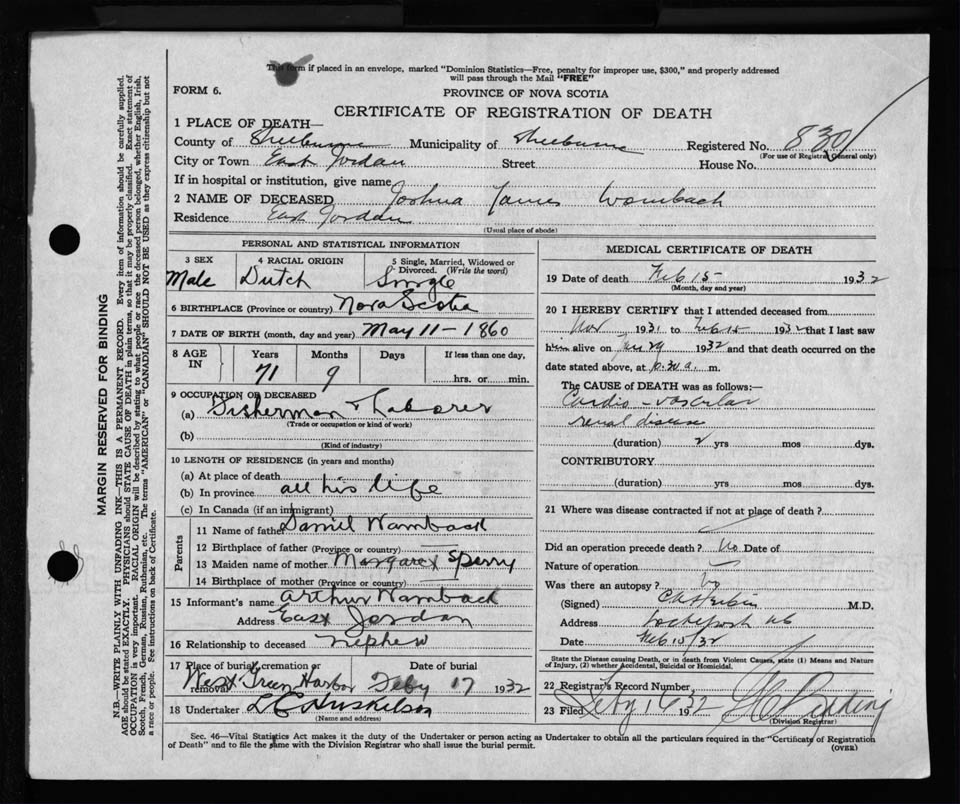 This form if placed in an envelope, marked "Dominion Statistics—Free, penalty for improper use, $300," and properly addressed
will pass through the Mail "FREE"
FORM 6.
PROVINCE OF NOVA SCOTIA
CERTIFICATE OF REGISTRATION OF DEATH
1 PLACE OF DEATH—
County of Shelburne Municipality of Shelburne Registered No. 830
(For use of Registrar General only)
City or Town East Jordan Street House No.
If in hospital or institution, give name
2 NAME OF DECEASED Joshua James Wambach
Residence East Jordan
(Usual place of abode)
PERSONAL AND STATISTICAL INFORMATION
3 SEX 4 RACIAL ORIGIN 5 Single, Married, Widowed or
Divorced. (Write the word)
Male Dutch Single
6 BIRTHPLACE (Province or country) Nova Scotia
7 DATE OF BIRTH (month, day and year) May 11-1860
8 AGE IN Years Months Days If less than one day,
71 9 hrs. or min.
9 OCCUPATION OF DECEASED
(a) Fisherman & Laborer
(Trade or occupation or kind of work)
(b)
(Kind of industry)
10 LENGTH OF RESIDENCE (in years and months)
(a) At place of death
(b) In province all his life
(c) In Canada (if an immigrant)
Parents
11 Name of father Daniel Wamback
12 Birthplace of father (Province or country)
13 Maiden name of mother Margaret Sperry
14 Birthplace of mother (Province or country)
15 Informant's name Arthur Wamback
Address East Jordan
16 Relationship to deceased nephew
17 Place of burial, cremation or removal Date of burial
West Green Harbor Feby 17 1932
18 Undertaker
(Name and address)
MEDICAL CERTIFICATE OF DEATH
19 Date of death Feb 15 1932
(Month, day and year)
20 I HEREBY CERTIFY that I attended deceased from
Nov 1931 to Feb 15 1932 that I last saw
him alive on Jan 29 1932 and that death occurred on the
date stated above, at a. m.
The CAUSE of DEATH was as follows:—
Cardio-vascular
renal disease
(duration) 2 yrs mos dys.
CONTRIBUTORY
(duration) yrs mos dys.
21 Where was disease contracted if not at place of death?
Did an operation precede death? No Date of
Nature of operation
Was there an autopsy? No
(Signed) M.D.
Address Lockeport NS
Date Feb 15/32
State the Disease causing Death, or in death from Violent Causes, state (1) Means and Nature
of Injury, (2) whether Accidental, Suicidal or Homicidal.
22 Registrar's Record Number
23 Filed Feby 16 1932
(Division Registrar)
Sec. 46—Vital Statistics Act makes it the duty of the Undertaker or person acting as Undertaker to obtain all the particulars required in the "Certificate of Registration
of Death" and to file the same with the Division Registrar who shall issue the burial permit. (OVER)
MARGIN RESERVED FOR BINDING
N.B.—WRITE PLAINLY WITH UNFADING INK—THIS IS A PERMANENT RECORD. Every item of information should be carefully supplied.
AGE should be stated EXACTLY. PHYSICIANS should STATE CAUSE OF DEATH in plain terms, so that it may be properly classified. Exact statement of
OCCUPATION is very important. RACIAL ORIGIN will be described by stating to what people or race the deceased person belonged, whether English, Irish,
Scotch, French, German, Russian, Ruthenian, etc. The terms "AMERICAN" or "CANADIAN" SHOULD NOT BE USED as they express citizenship but not
a race or people. See instructions on back of Certificate.